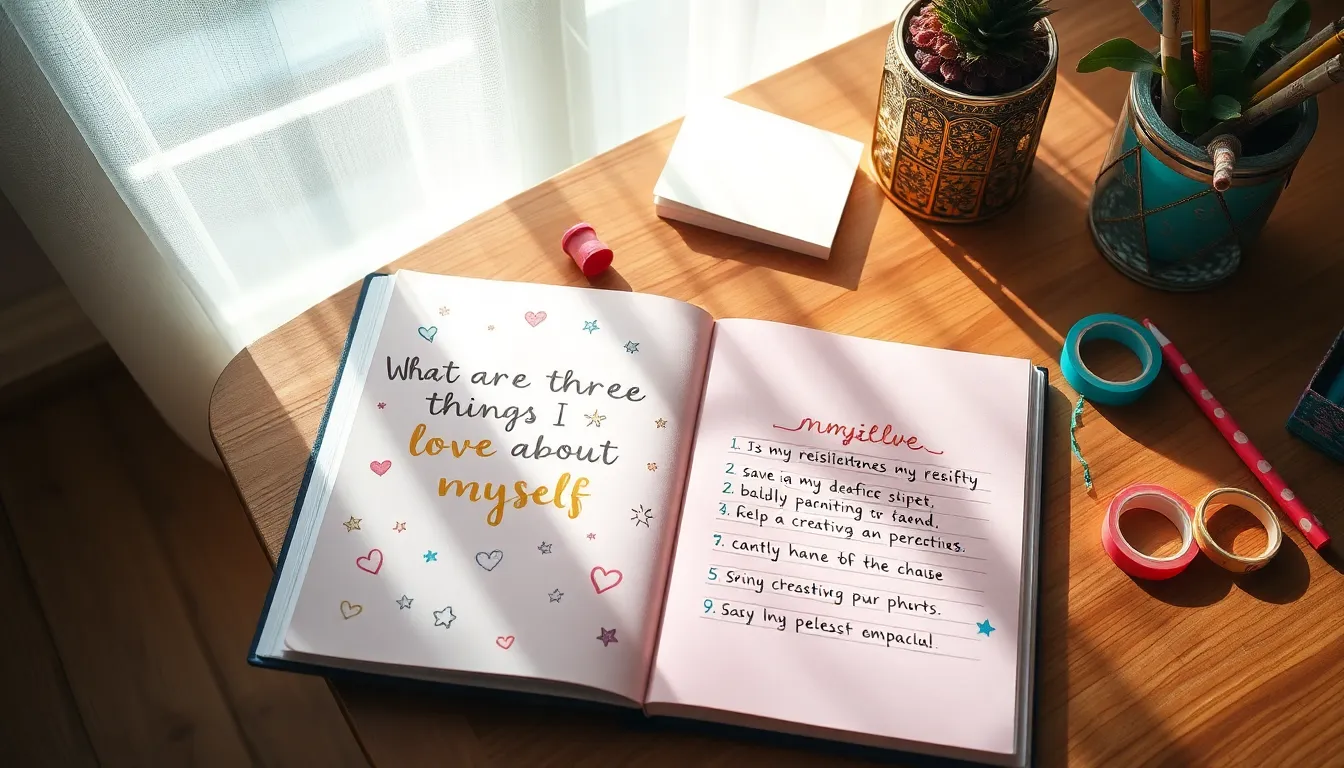 What are three
things I
love about
myself
mmyillve
1. Is my reislietenes my resifty
2. save is my deaficc slipet.
2. baldly parniting or taend.
3. felp a creating an perecties.
7. cantly hane of the chause
5. Sriny creastivg pur phurts.
9. Sasy lny pelesst empaclu!